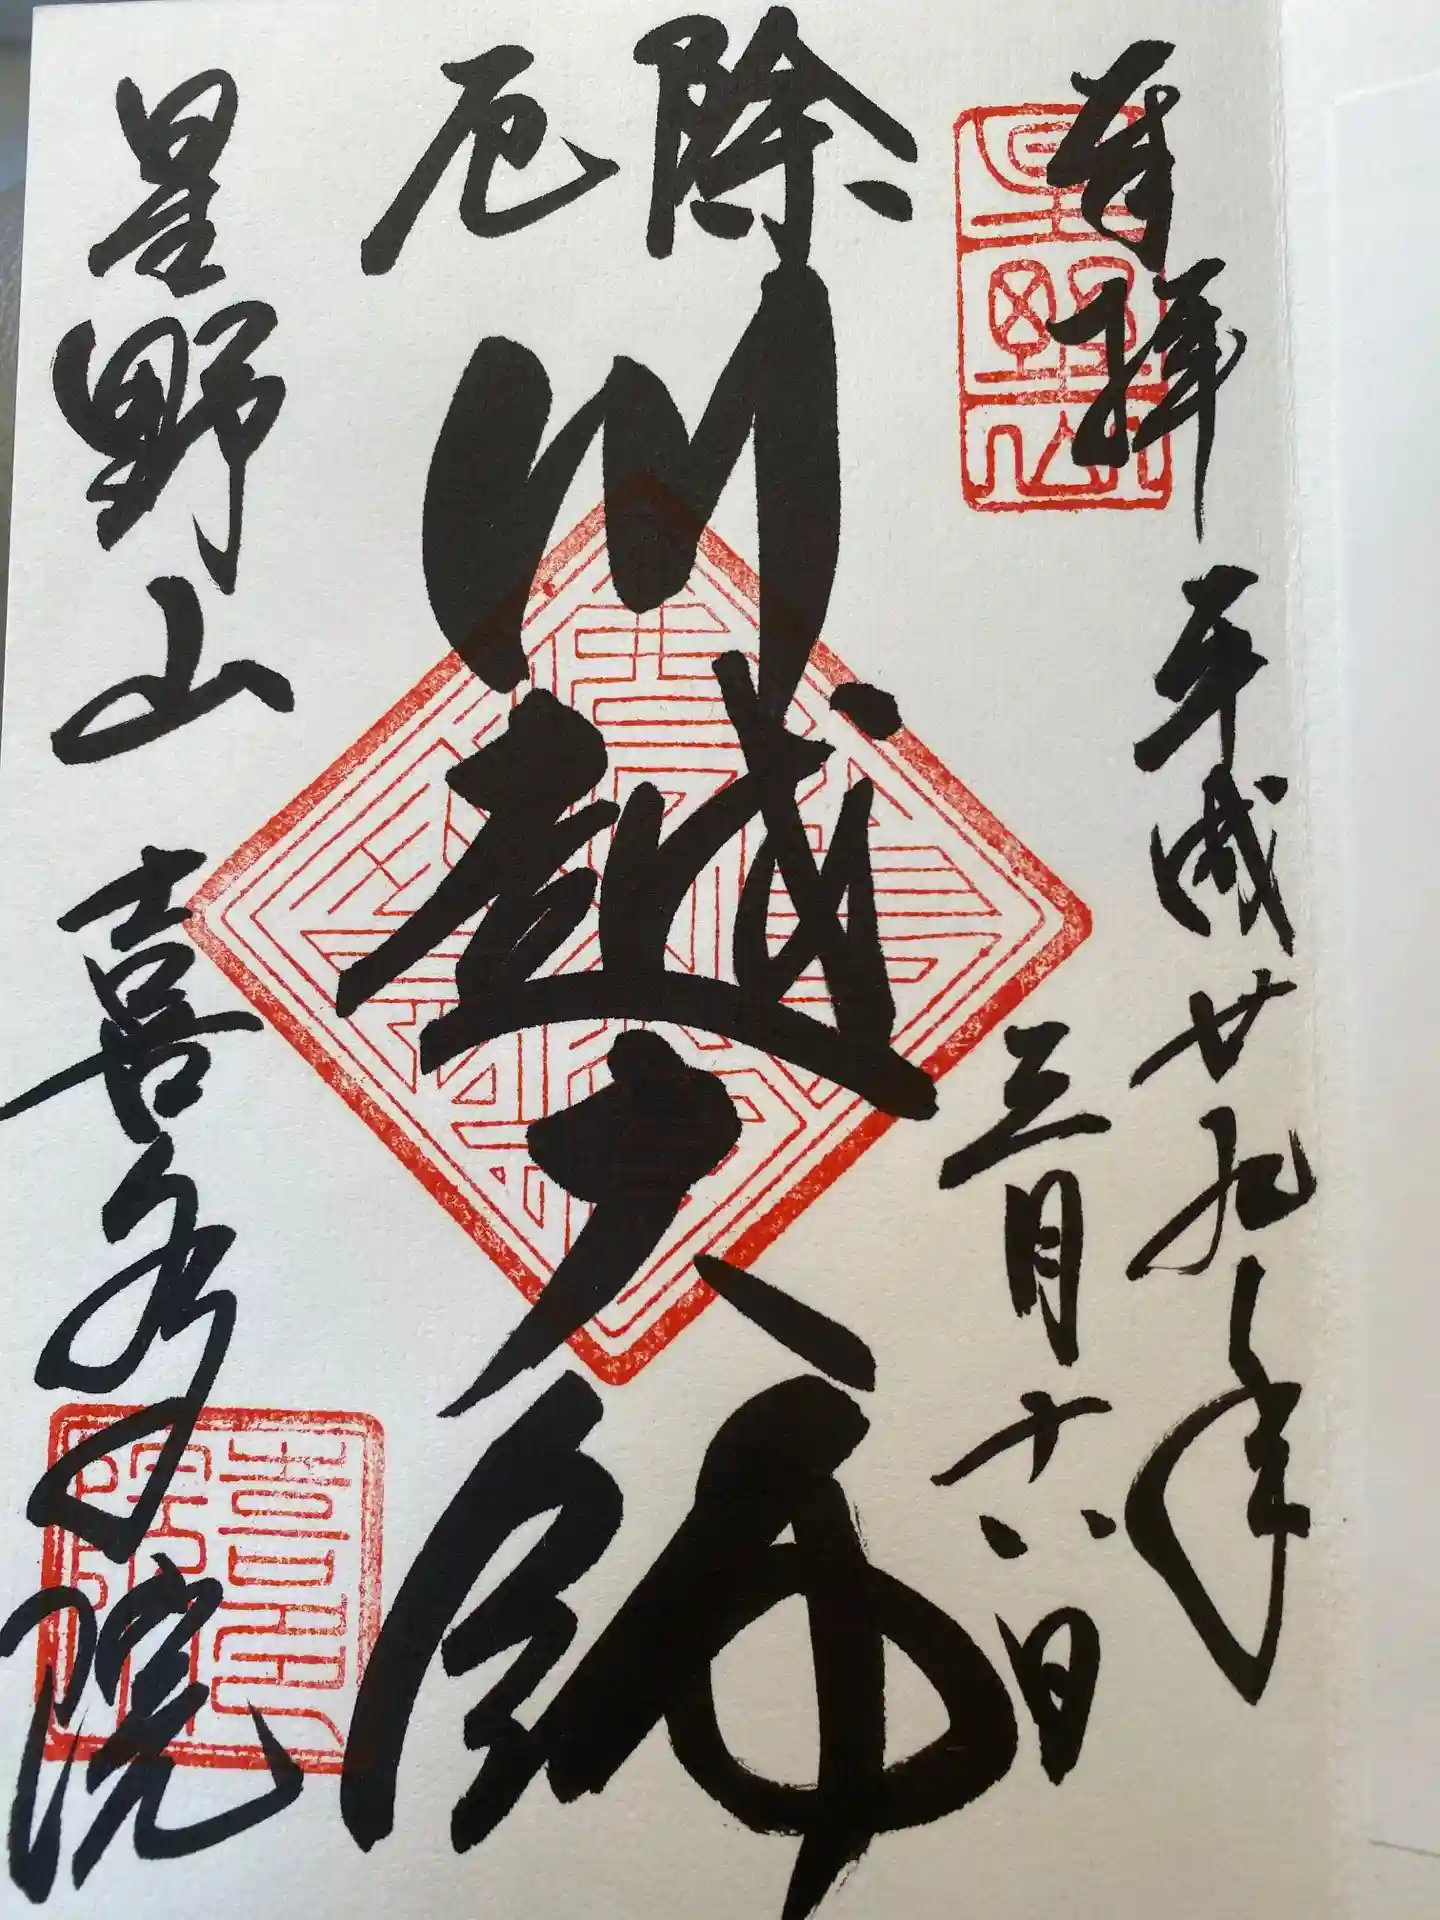 奉拝
平成廿九年
三月十六日
厄除
川越大師
星野山 喜多院
星野山
喜多院